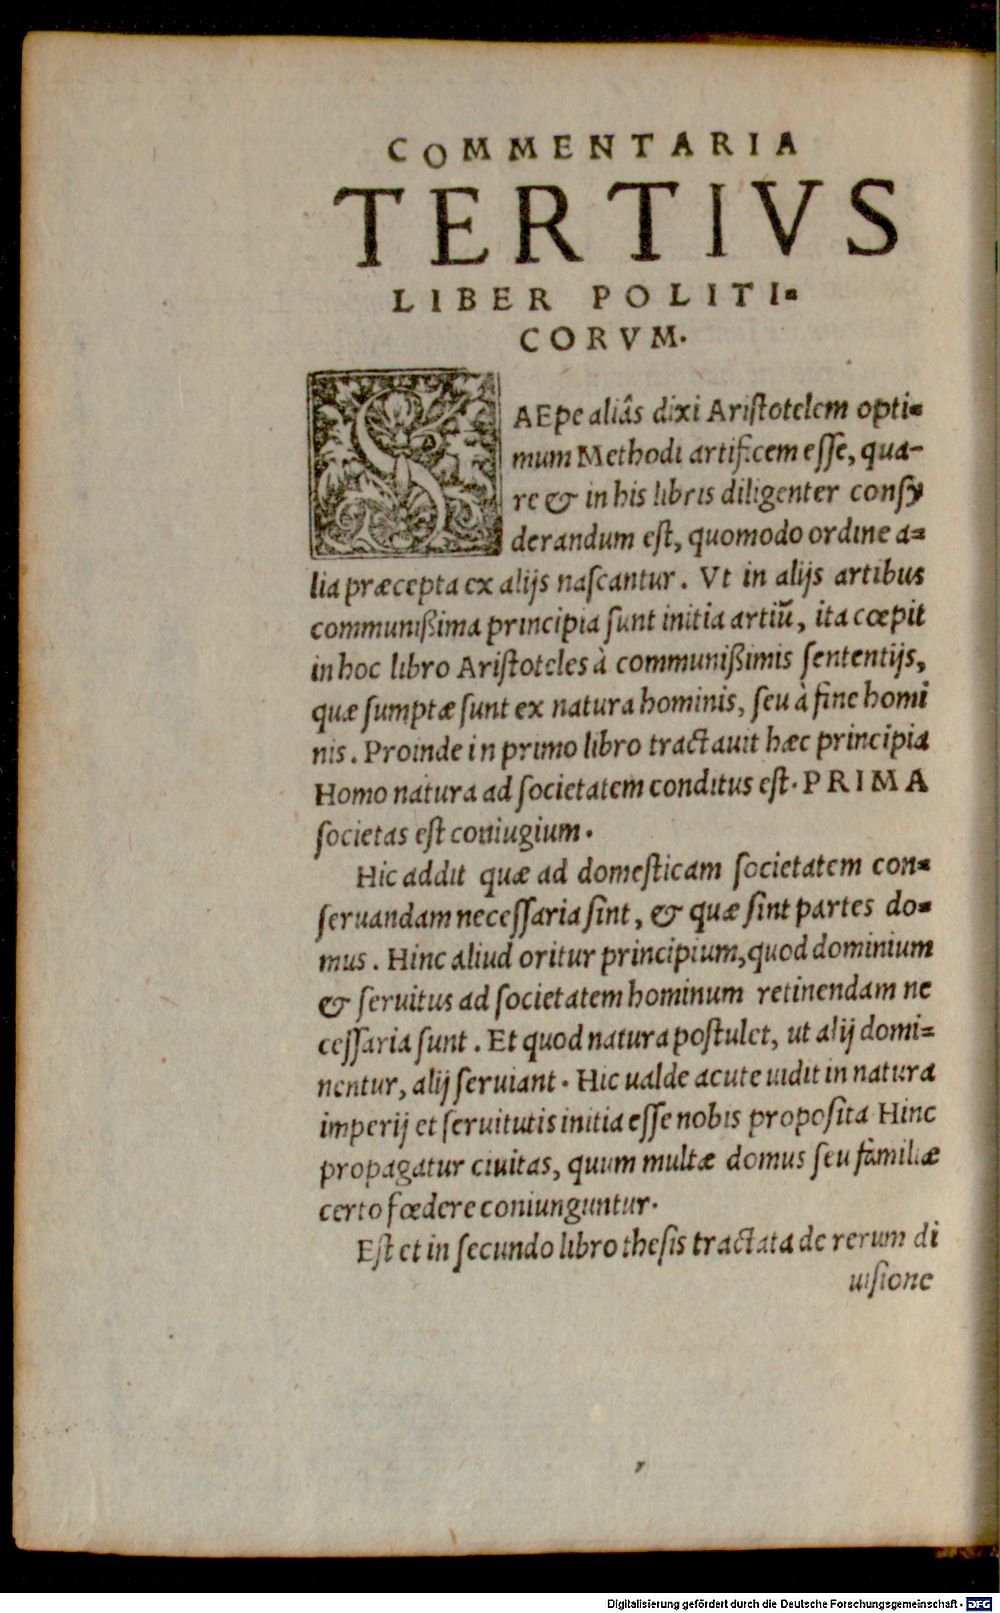 COMMENTARIA
TERTIVS
LIBER POLITI-
CORVM.
SAEpe aliâs dixi Aristotelem opti-
mum Methodi artificem esse, qua-
re & in his libris diligenter consy
derandum est, quomodo ordine a-
lia præcepta ex alijs nascantur. Vt in alijs artibus
communißima principia sunt initia artiũ, ita cœpit
in hoc libro Aristoteles à communißimis sententijs,
quæ sumptæ sunt ex natura hominis, seu à fine homi
nis. Proinde in primo libro tractauit hæc principia
Homo natura ad societatem conditus est. PRIMA
societas est coniugium.
Hic addit quæ ad domesticam societatem con-
seruandam necessaria sint, & quæ sint partes do-
mus. Hinc aliud oritur principium, quod dominium
& seruitus ad societatem hominum retinendam ne
cessaria sunt. Et quod natura postulet, ut alij domi-
nentur, alij seruiant. Hic ualde acute uidit in natura
imperij et seruitutis initia esse nobis proposita Hinc
propagatur ciuitas, quum multæ domus seu familiæ
certo fœdere coniunguntur.
Est et in secundo libro thesis tractata de rerum di
uisione
Digitalisierung gefördert durch die Deutsche Forschungsgemeinschaft - DFG